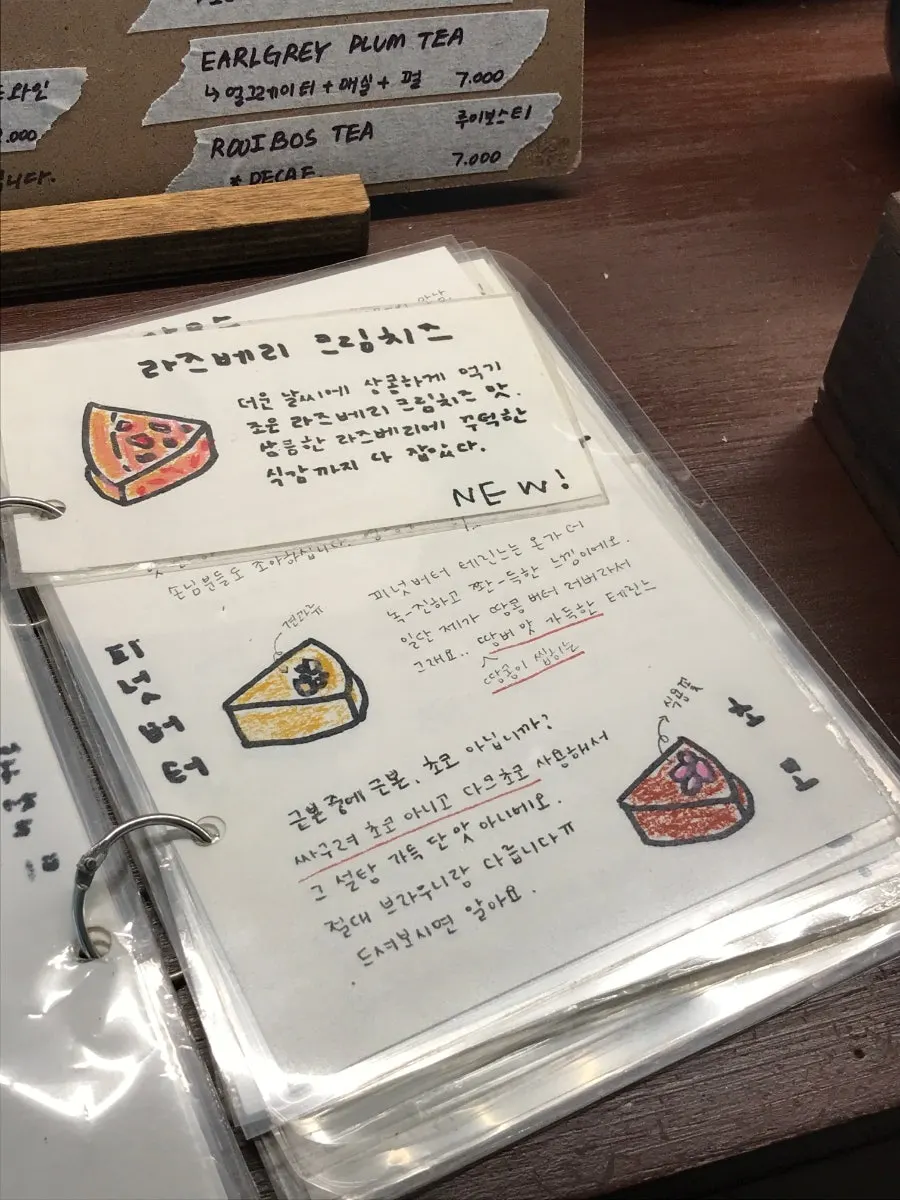 EARLGREY PLUM TEA
↳ 얼그레이티 + 매실 + 펄 7.000
ROOIBOS TEA 루이보스티
7.000
* DECAF.
와인
.000
니다.
라즈베리 크림치즈
더운 날씨에 상콤하게 먹기
조은 라즈베리 크림치즈 맛.
상큼한 라즈베리에 꾸덕한
식감까지 다 잡았다.
NEW!
손님분들도 조아하십니다.
피넛버터
견과류
피넛버터 테린느는 온가 더
녹-진하고 쫀-득한 느낌이에요.
일단 제가 땅콩 버터 러버라서
그래요.. 땅버 맛 가득한 테린느
땅콩이 씹히는
초코
식용꽃
근본 중에 근본, 초코 아닙니까?
싸구려 초코 아니고 다크초코 사용해서
그 설탕 가득 단맛 아니에요.
절대 브라우니랑 다릅니다ㅠ
드셔보시면 알아요.